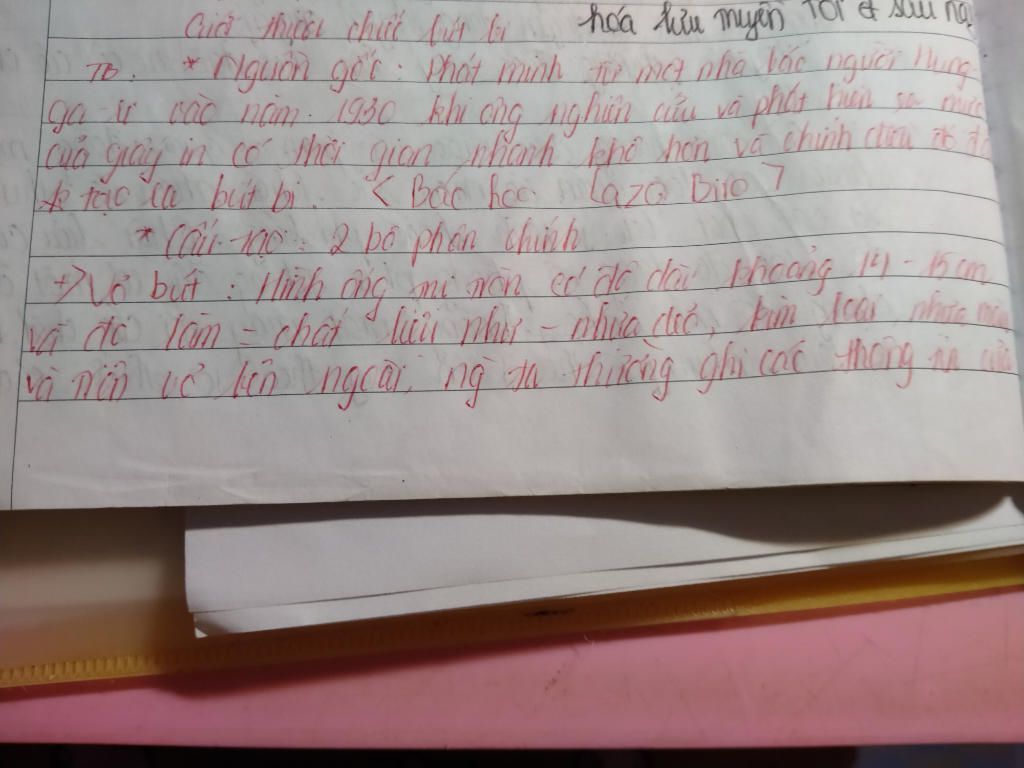 hóa lưu truyền TOI & sau
Giới thiệu chiếc bút bi
TB. * Nguồn gốc: Phát minh từ một nhà báo người Hung-
ga-ri vào năm 1930 khi ông nghiên cứu và phát hiện ra mực
của giấy in có thời gian nhanh khô hơn và chính điều đó đã
tạo ra bút bi. < Bác học Lazo Biro >
* Cấu tạo: 2 bộ phận chính
+> Vỏ bút: Hình ống trụ tròn có độ dài khoảng 14 - 15 cm
và đc làm = chất liệu như - nhựa dẻo, kim loại, nhựa màu
và trên vỏ bên ngoài, ng ta thường ghi các thông tin của